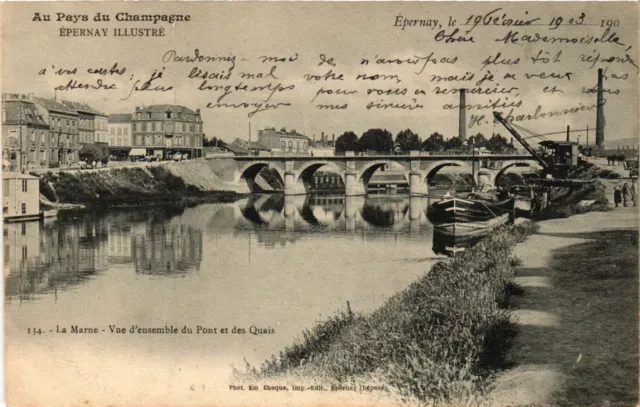 Au Pays du Champagne
ÉPERNAY ILLUSTRÉ
Épernay, le 19 Février 1903 190
Chère Mademoiselle,
Pardonnez-moi de n'avoir pas plus tôt répondu
à vos cartes; je lisais mal votre nom, mais je ne veux pas
attendre plus longtemps pour vous remercier, et vous
envoyer mes sincères amitiés
H Charbonnier
134. - La Marne - Vue d'ensemble du Pont et des Quais
Phot. Em. Choque, Imp.-Edit., Épernay